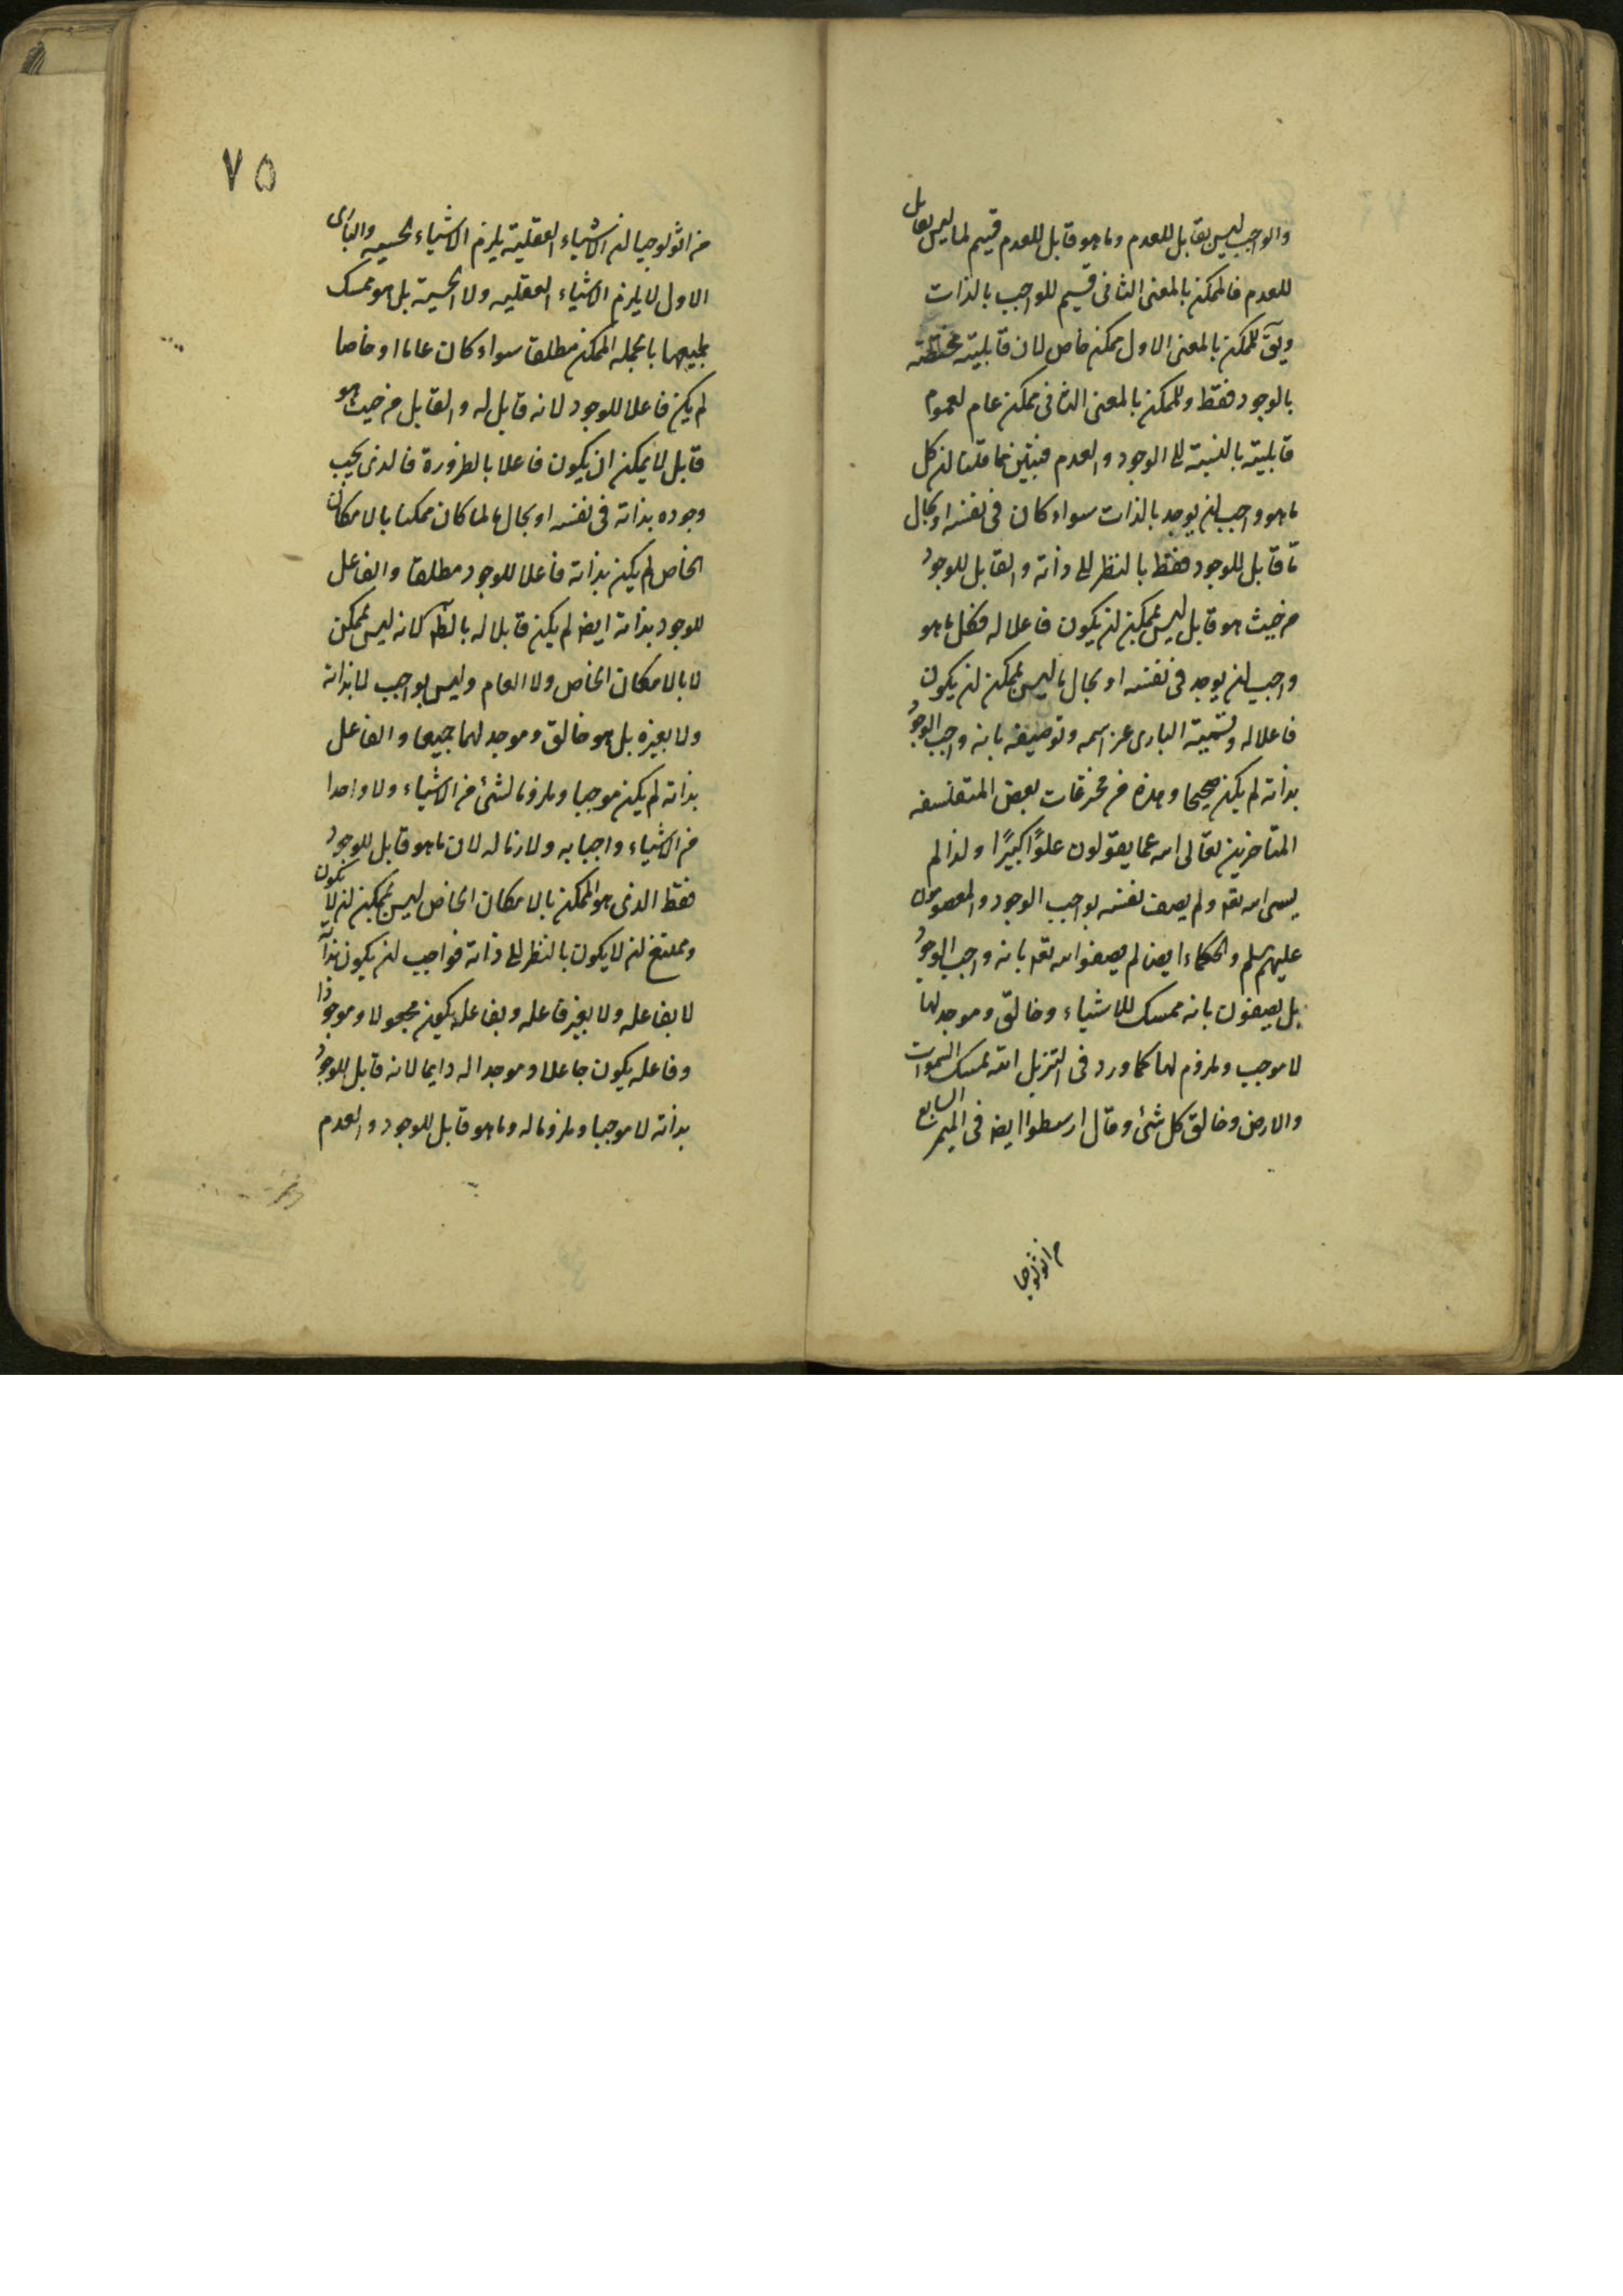 والواجب ليس بقابل للعدم وما هو قابل للعدم قسيم لما ليس بقابل
للعدم فالممكن بالمعنى الثانى قسيم للواجب بالذات
ويق للممكن بالمعنى الاول ممكن خاص لان قابليته مختصة
بالوجود فقط وللممكن بالمعنى الثانى ممكن عام لعموم
قابليته بالنسبة الى الوجود والعدم فتبين مما قلنا ان كل
ما هو واجب ان يوجد بالذات سواء كان فى نفسه او بحال
ما قابل للوجود فقط بالنظر الى ذاته والقابل للوجود
من حيث هو قابل ليس بممكن ان يكون فاعلا له فكل ما هو
واجب ان يوجد فى نفسه او بحال ما ليس بممكن ان يكون
فاعلا له وتسمية البارى عز اسمه وتوصيفه بانه واجب الوجود
بذاته لم يكن صحيحا وهذه من مخترعات بعض المتفلسفه
المتاخرين تعالى الله عما يقولون علوًا كبيرًا ولذا لم
يسمى الله تعه ولم يصف نفسه بواجب الوجود والمعصومون
عليهم سلم والحكماء ايض لم يصفوا الله تعه بانه واجب الوجود
بل يصفون بانه ممسك للاشياء وخالق وموجد لها
لا موجب وملزوم لها كما ورد فى التنزيل الله يمسك السموات
والارض وخالق كل شئ وقال ارسطوا ايض فى الميمر السابع
من اثولوجيا
٧٥
من اثولوجيا ان الاشياء العقلية يلزم الاشياء الحسيه والبارى
الاول لا يلزم الاشياء العقليه ولا الحسية بل هو ممسك
لجميعها بالجمله الممكن مطلقا سواء كان عاما او خاصا
لم يكن فاعلا للوجود لانه قابل له والقابل من حيث هو
قابل لا يمكن ان يكون فاعلا بالضرورة فالذى يجب
وجوده بذاته فى نفسه او بحال ما لما كان ممكنا بالامكان
الخاص لم يكن بذاته فاعلا للوجود مطلقا والفاعل
للوجود بذاته ايض لم يكن قابلا له بالضرورة لانه ليس بممكن
لا بالامكان الخاص ولا العام وليس بواجب لا بذاته
ولا بغيره بل هو خالق وموجد لهما جميعا والفاعل
بذاته لم يكن موجبا وملزوما لشئ من الاشياء ولا واحدا
من الاشياء واجبا به ولازما له لان ما هو قابل للوجود
فقط الذى هو الممكن بالامكان الخاص ليس بممكن ان لا يكون
وممتنع ان لا يكون بالنظر الى ذاته فواجب ان يكون بذاته
لا بفاعله ولا بغير فاعله وبفاعله يكون مجعولا وموجودا
وفاعله يكون جاعلا وموجدا له دايما لانه قابل للوجود
بذاته لا موجبا وملزوما له وما هو قابل للوجود والعدم